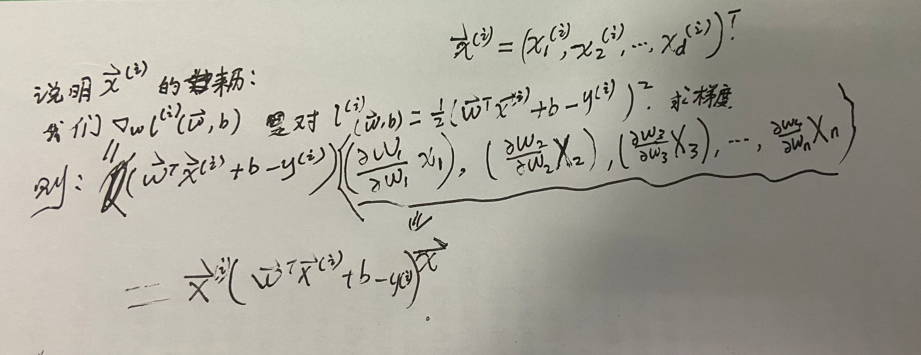 x⃗^(i) = (x₁^(i), x₂^(i), ..., x_d^(i))^T.
说明 x⃗^(i) 的来历:
我们 ∇w l^(i)(w⃗,b) 是对 l^(i)(w⃗,b) = 1/2 (w⃗^T x⃗^(i) + b - y^(i))². 求梯度
则: (w⃗^T x⃗^(i) + b - y^(i)) ((∂w₁/∂w₁ x₁), (∂w₂/∂w₂ x₂), (∂w₃/∂w₃ x₃), ..., ∂wₙ/∂wₙ xₙ)
= x⃗^(i) (w⃗^T x⃗^(i) + b - y^(i)) x⃗